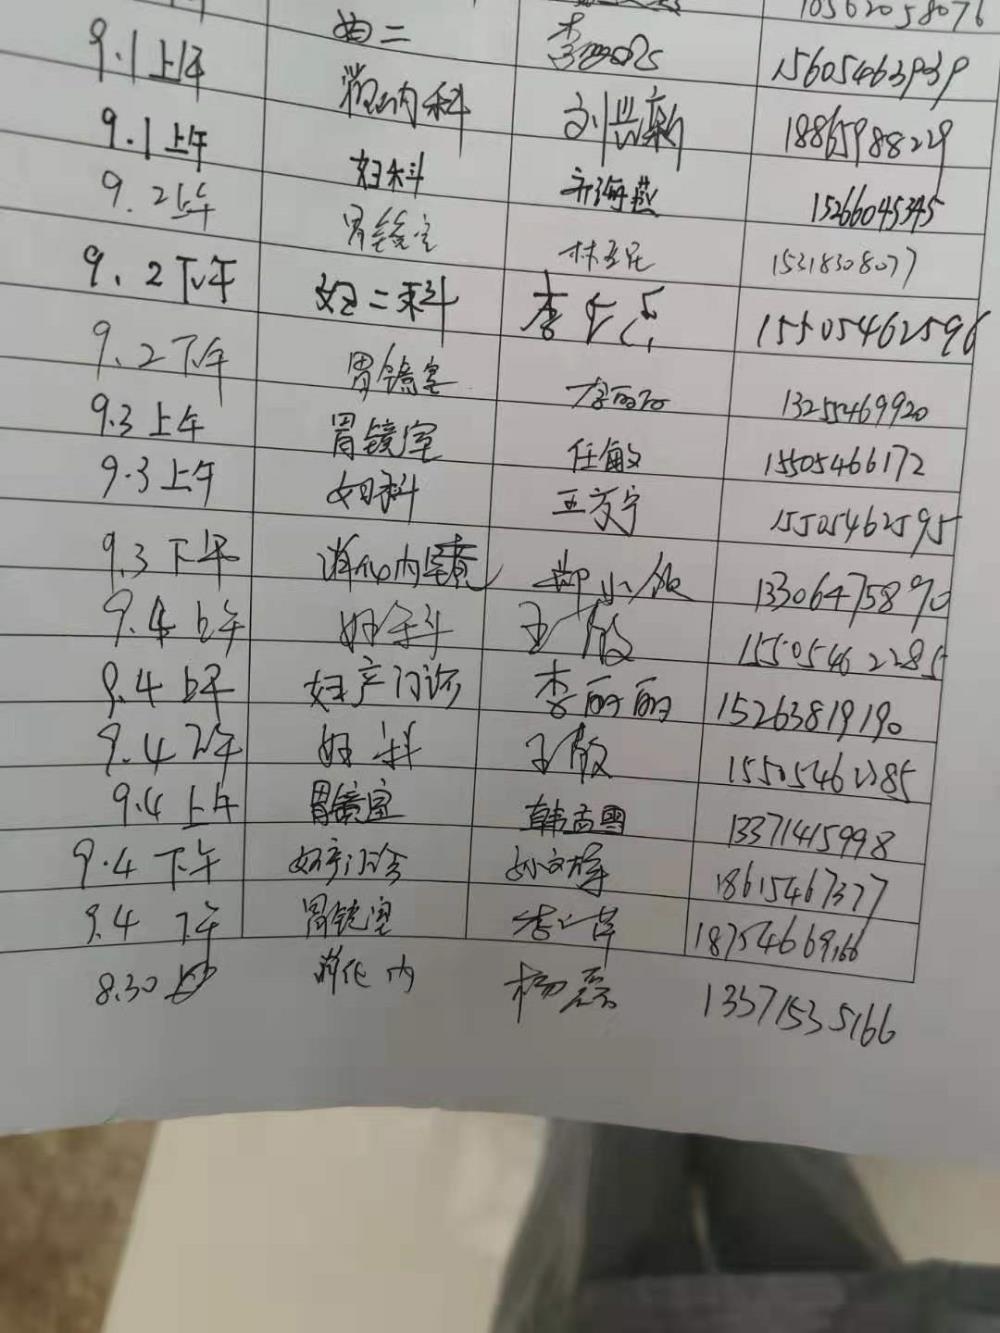 10562058076
9.1上午 妇二 李 15605463939
9.1上午 内科 刘兴新 18865988229
9.2上午 妇科 齐海燕 15266045345
9.2下午 胃镜室 林 15318308077
妇二科 李 15505462596
9.2下午 胃镜室 李丽 13255469920
9.3上午 胃镜室 任敏 15505466172
9.3上午 妇科 王文宁 15505462595
9.3下午 消化内镜 小 13306475890
9.4上午 妇科 王敏 15505462285
9.4上午 妇产门诊 李丽丽 15263819190
9.4 午 妇科 王敏 15505462285
9.4上午 胃镜室 韩雪 13371415998
9.4下午 妇产门诊 孙文 18615467377
9.4 下午 胃镜室 李 18754669166
8.30上午 消化内 杨磊 13371535166